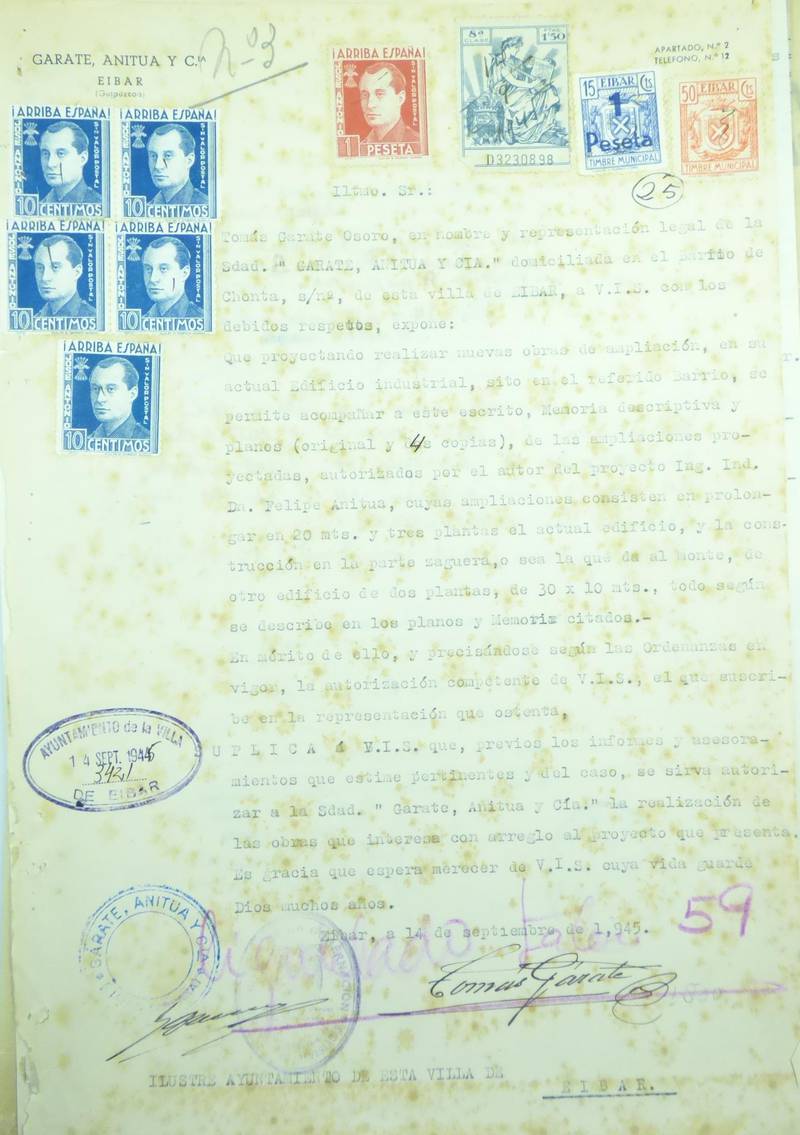 GARATE, ANITUA Y C.IA
EIBAR
(Guipúzcoa)
Nº 3
APARTADO, N.º 2
TELEFONO, N.º 12
¡ARRIBA ESPAÑA!
JOSE ANTONIO
SIN VALOR POSTAL
10 CENTIMOS
¡ARRIBA ESPAÑA!
JOSE ANTONIO
SIN VALOR POSTAL
10 CENTIMOS
¡ARRIBA ESPAÑA!
JOSE ANTONIO
SIN VALOR POSTAL
10 CENTIMOS
¡ARRIBA ESPAÑA!
JOSE ANTONIO
SIN VALOR POSTAL
10 CENTIMOS
¡ARRIBA ESPAÑA!
JOSE ANTONIO
SIN VALOR POSTAL
10 CENTIMOS
¡ARRIBA ESPAÑA!
JOSE ANTONIO
SIN VALOR POSTAL
1 PESETA
8ª CLASE
PTAS. 1'50
D3230898
15 EIBAR Cts
1 Peseta
TIMBRE MUNICIPAL
50 EIBAR Cts
TIMBRE MUNICIPAL
25
Iltmo. Sr.:
Tomás Garate Osoro, en nombre y representación legal de la
Sdad. " GARATE, ANITUA Y CIA." domiciliada en el Barrio de
Chonta, s/nº, de esta villa de EIBAR, a V.I.S. con los
debidos respetos, expone:
Que proyectando realizar nuevas obras de ampliación, en su
actual Edificio industrial, sito en el referido Barrio, se
permite acompañar a este escrito, Memoria descriptiva y
planos (original y 4 copias), de las ampliaciones pro-
yectadas, autorizados por el autor del proyecto Ing. Ind.
Dn. Felipe Anitua, cuyas ampliaciones consisten en prolon-
gar en 20 mts. y tres plantas el actual edificio, y la cons-
trucción en la parte zaguera,o sea la que da al monte, de
otro edificio de dos plantas, de 30 x 10 mts., todo según
se describe en los planos y Memoria citados.-
En mérito de ello, y precisándose según las Ordenanzas en
vigor, la autorización competente de V.I.S., el que suscri-
be en la representación que ostenta,
S U P L I C A á V.I.S. que, previos los informes y asesora-
mientos que estime pertinentes y del caso, se sirva autori-
zar a la Sdad. " Garate, Anitua y Cía." la realización de
las obras que interesa con arreglo al proyecto que presenta.
Es gracia que espera merecer de V.I.S. cuya vida guarde
Dios muchos años.
Eibar, a 14 de septiembre de 1,945.
AYUNTAMIENTO de la VILLA
14 SEPT. 1945
3421
DE EIBAR
GARATE, ANITUA Y CIA
59
Tomás Gárate
ILUSTRE AYUNTAMIENTO DE ESTA VILLA DE
EIBAR.